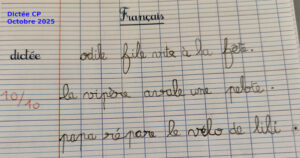 Dictée CP
Octobre 2025
Français
dictée
odile file vite à la fête.
10/10
la vipère avale une pelote.
papa répare le vélo de lili.